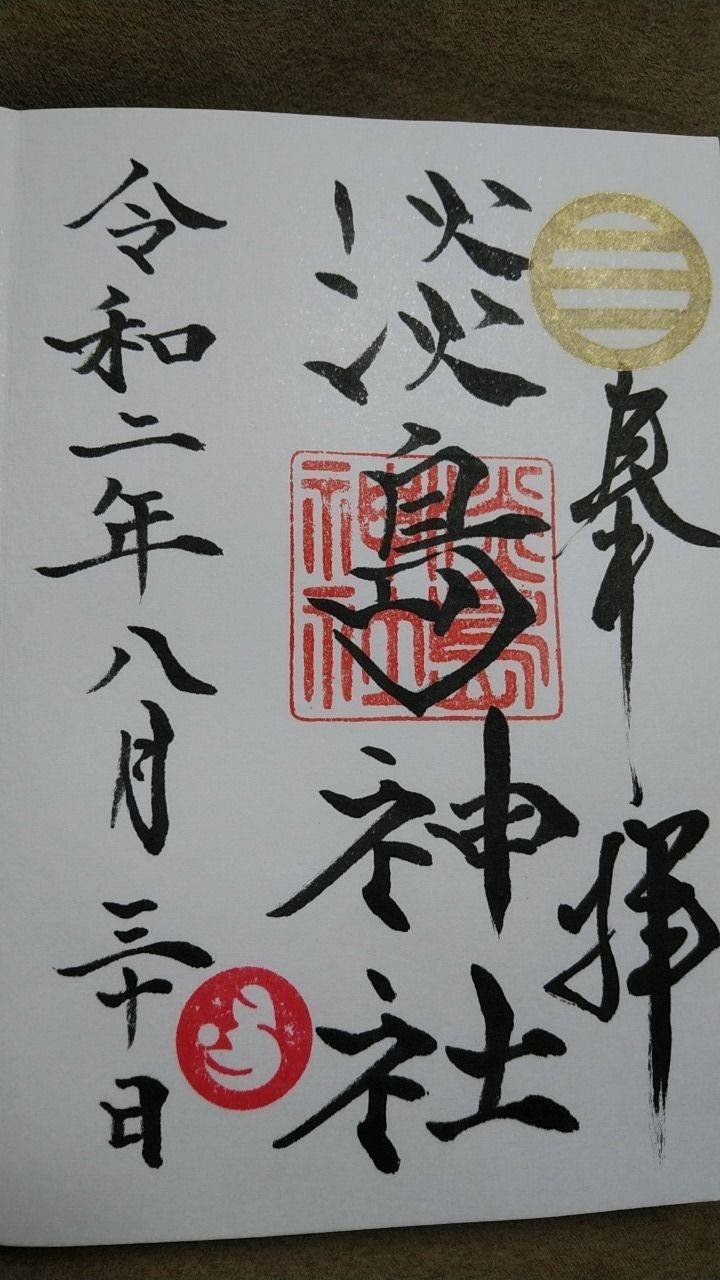 奉拝
淡島神社
淡島
神社
令和二年八月三十日